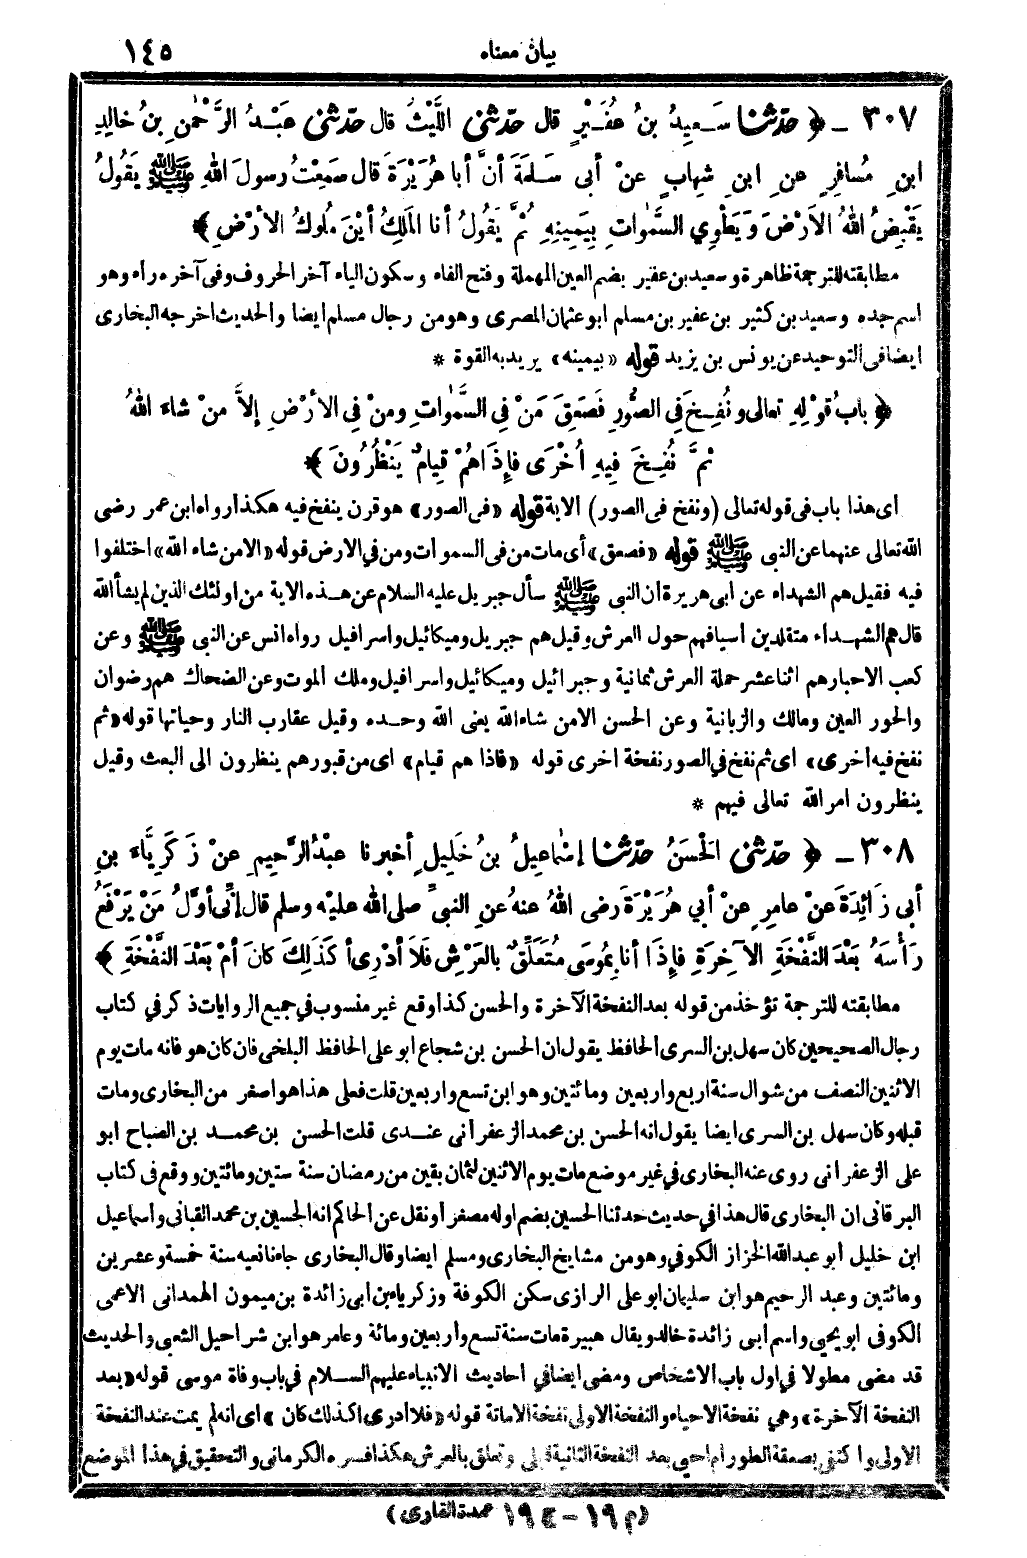 بيان معناه ١٤٥
٣٠٧ ــ ﴿ حَدَّثَنَا سَعِيدُ بنُ عُفَيْرٍ قال حَدَّثَنِي اللَّيْثُ قال حَدَّثَنِي عَبْدُ الرَّحْمٰنِ بنُ خالِدِ
ابنِ مُسافِرٍ عنِ ابنِ شِهابٍ عنْ أبي سَلَمَةَ أنَّ أبا هُرَيْرَةَ قال سَمِعْتُ رسولَ اللهِ ﷺ يَقُولُ
يَقْبِضُ اللهُ الأرْضَ وَيَطْوِي السَّمٰواتِ بِيَمِينِهِ ثُمَّ يَقُولُ أنا المَلِكُ أيْنَ مُلُوكُ الأرْضِ ﴾
مطابقته للترجمة ظاهرة وسعيد بن عفير بضم العين المهملة وفتح الفاء وسكون الياء آخر الحروف وفي آخره راء وهو
اسم جده وسعيد بن كثير بن عفير بن مسلم ابو عثمان المصرى وهو من رجال مسلم ايضا والحديث اخرجه البخارى
ايضا في التوحيد عن يونس بن يزيد قوله «بيمينه» يريد به القوة *
﴿ بابُ قوْلِهِ تعالى ونُفِخَ فِي الصُّورِ فَصَعِقَ مَنْ فِي السَّمٰواتِ ومنْ فِي الأرْضِ إلاَّ منْ شاءَ اللهُ
ثمَّ نُفِخَ فِيهِ أُخْرَى فإذَا هُمْ قِيامٌ يَنْظُرُونَ ﴾
اى هذا باب في قوله تعالى (ونفخ في الصور) الآية قوله «في الصور» هو قرن ينفخ فيه هكذا رواه ابن عمر رضى
الله تعالى عنهما عن النبى ﷺ قوله «فصعق» أى مات من في السموات ومن في الارض قوله «الا من شاء الله» اختلفوا
فيه فقيل هم الشهداء عن ابى هريرة ان النبى ﷺ سأل جبريل عليه السلام عن هذه الاية من اولئك الذين لم يشأ الله
قال هم الشهداء متقلدين اسيافهم حول العرش وقيل هم جبريل وميكائيل واسرافيل رواه انس عن النبى ﷺ وعن
كعب الاحبار هم اثنا عشر حملة العرش ثمانية وجبرائيل وميكائيل واسرافيل وملك الموت وعن الضحاك هم رضوان
والحور العين ومالك والزبانية وعن الحسن الا من شاء الله يعنى الله وحده وقيل عقارب النار وحياتها قوله «ثم
نفخ فيه اخرى» اى ثم نفخ في الصور نفخة اخرى قوله «فاذا هم قيام» اى من قبورهم ينظرون الى البعث وقيل
ينظرون امر الله تعالى فيهم *
٣٠٨ ــ ﴿ حَدَّثَنِي الحَسَنُ حَدَّثَنَا إسْمٰاعِيلُ بنُ خَلِيلٍ أخبرنا عبْدُ الرَّحِيمِ عنْ زَكَرِيَّاءَ بنِ
أبي زَائِدَةَ عَنْ عامِرٍ عنْ أبي هُرَيْرَةَ رضى اللهُ عنهُ عنِ النبيِّ صلى الله عليْه وسلم قال إنِّي أوَّلُ مَنْ يَرْفَعُ
رَأْسَهُ بعْدَ النَّفْخَةِ الآخِرَةِ فإذَا أنا بِمُوسَى مُتَعَلِّقٌ بالعَرْشِ فَلاَ أدْرِى أَكَذَلِكَ كانَ أمْ بَعْدَ النَّفْخَةِ ﴾
مطابقته للترجمة تؤخذ من قوله بعد النفخة الآخرة والحسن كذا وقع غير منسوب في جميع الروايات ذكر في كتاب
رجال الصحيحين كان سهل بن السرى الحافظ يقول ان الحسن بن شجاع ابو على الحافظ البلخى فان كان هو فانه مات يوم
الاثنين النصف من شوال سنة اربع واربعين ومائتين وهو ابن تسع واربعين قلت فعلى هذا هو اصغر من البخارى ومات
قبله وكان سهل بن السرى ايضا يقول انه الحسن بن محمد الزعفرانى عندى قلت الحسن بن محمد بن الصباح ابو
على الزعفرانى روى عنه البخارى في غير موضع مات يوم الاثنين لثمان بقين من رمضان سنة ستين ومائتين ووقع في كتاب
البرقانى ان البخارى قال هذا في حديث حدثنا الحسين بضم اوله مصغر أو نقل عن الحاكم انه الحسين بن محمد القبانى واسماعيل
ابن خليل أبو عبد الله الخزاز الكوفي وهو من مشايخ البخارى ومسلم ايضا وقال البخارى جاءنا نعيه سنة خمسة وعشرين
ومائتين وعبد الرحيم هو ابن سليمان ابو على الرازى سكن الكوفة وزكرياء بن ابى زائدة بن ميمون الهمدانى الاعمى
الكوفى ابو يحيى واسم ابى زائدة خالد ويقال هبيرة مات سنة تسع وأربعين ومائة وعامر هو ابن شراحيل الشعبى والحديث
قد مضى مطولا في اول باب الاشخاص ومضى ايضا في احاديث الانبياء عليهم السلام في باب وفاة موسى قوله «بعد
النفخة الآخرة» وهي نفخة الاحياء والنفخة الاولى نفخة الاماتة قوله «فلا أدرى اكذلك كان» اى انه لم يمت عند النفخة
الاولى واكتفى بصعقة الطور ام احيى بعد النفخة الثانية قبلى وتعلق بالعرش هكذا فسره الكرمانى والتحقيق في هذا الموضع
(م ١٩ – ج ١٩ عمدة القارى)